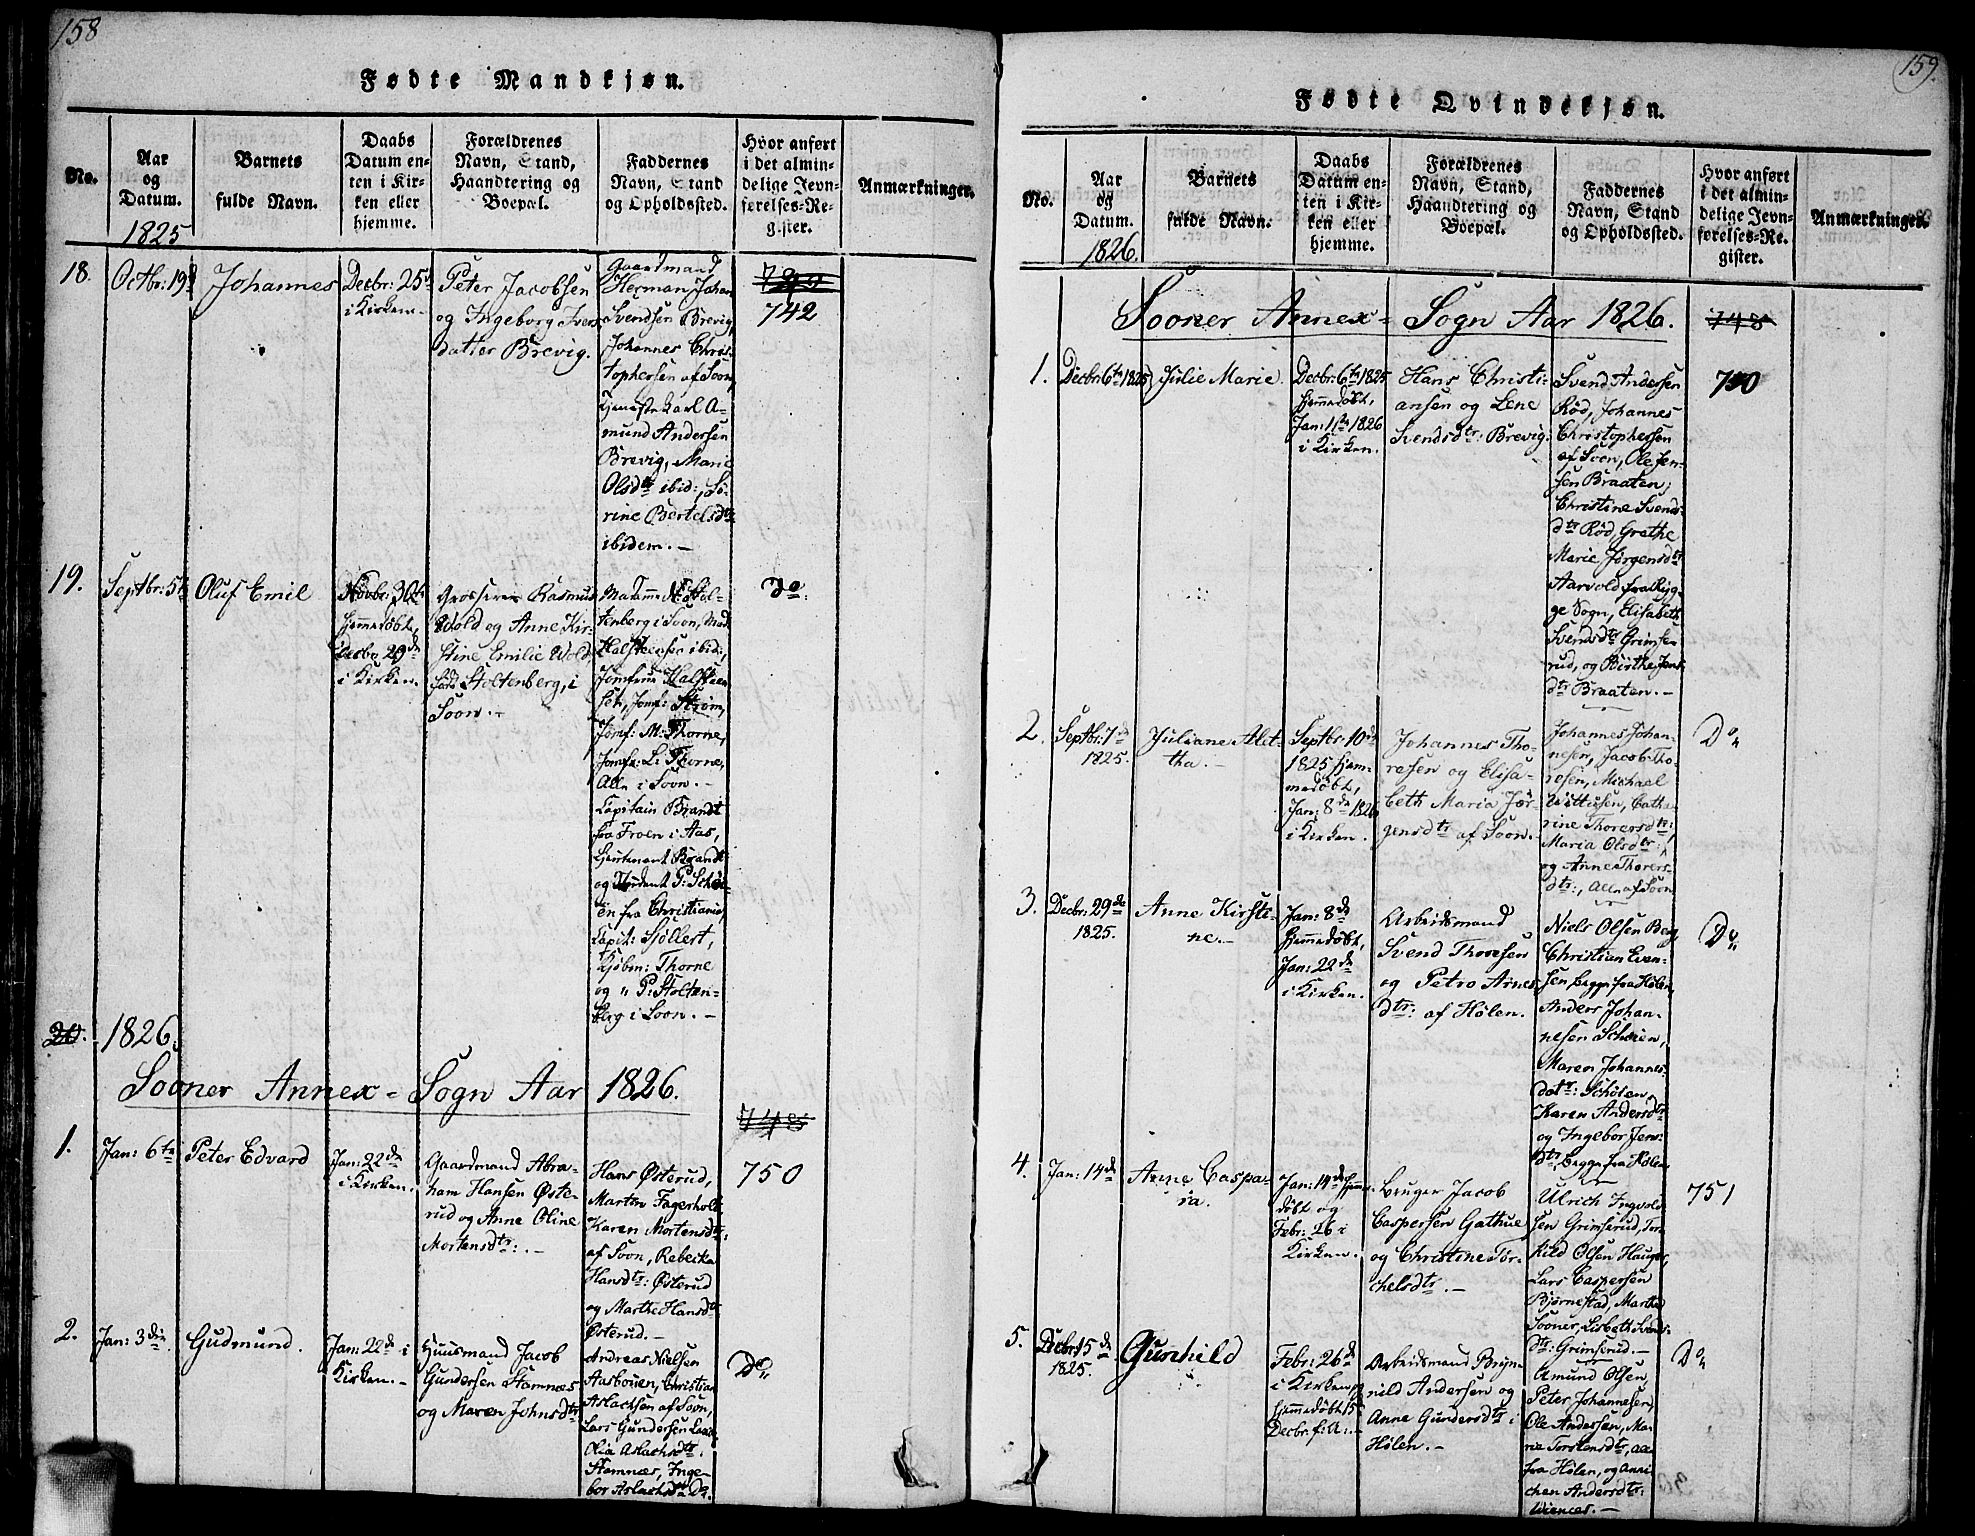 158
Fødte Mandkjøn.
No.
Aar
og
Datum.
1825
Barnets
fulde Navn.
Daabs
Datum en-
ten i Kir-
ken eller
hjemme.
Forældrenes
Navn, Stand,
Haandtering og
Boepæl.
Faddernes
Navn, Stand
og Opholdssted.
Hvor anført
i det almin-
delige Jevn-
førelses-Re-
gister.
Anmærkninger.
18.
Octbr: 19d
Johannes
Decbr: 25d
i Kirken.
Peter Jacobsen
og Ingeborg Ivers
datter Brevig.
Gaardmand
Herman Johan
Svendsen Brevig,
Johannes Chris-
tophersen af Soon,
Tjenestekarl A-
mund Andersen
Brevig, Marie
Olsdtr ibid:, Sø-
rine Bertelsdtr
ibidem. -
742
19.
Septbr: 5te
Oluf Emil
Novbr: 30te
hjemmedøbt,
Decbr 29de
i Kirken.
Grosserer Rasmus
Wold og Anne Kir-
stine Emilie Wold
født Stoltenberg, i
Soon. -
Madame Stol-
tenberg i Soon, Mad
Halsteensen ibid:,
Jomfrue Halsteen
sen, Jomf: Strøm,
Jomf: M: Thorne,
Jomfr: L: Thorne,
Alle i Soon. -
Capitain Brandt
fra Froen i Aas,
Lieutenant Brandt
og Student P: Schø-
en fra Christiania,
Capit: Sjøllert,
Kjøbm: Thorne
og P: Stolten-
berg i Soon. -
Do.
20.
1826.
Sooner Annex-Sogn Aar 1826.
748
1.
Jan: 6te
Peter Edvard
Jan: 22de
i Kirken.
Gaardmand Abra-
ham Hansen Øste-
rud og Anne Oline
Mortensdtr: -
Hans Østerud,
Morten Fagerholt
Karen Mortensdtr:
af Soon, Rebecka
Hansdtr: Østerud
og Marthe Hansdtr
Østerud. -
750
2.
Jan: 3die
Gudmund.
Jan: 22de i
Kirken. -
Huusmand Jacob
Gundersen Stamnæs
og Maren Johnsdtr
Andreas Nielsen
Aasbouen, Christian
Aslachsen af Soon,
Lars Gundersen
Olia Aslachsdtr
Stamnæs, Inge-
bor Aslachsdtr Do.
Do
159.
Fødte Qvindekjøn.
No.
Aar
og
Datum.
1826.
Barnets
fulde Navn.
Daabs
Datum en-
ten i Kir-
ken eller
hjemme.
Forældrenes
Navn, Stand,
Haandtering og
Boepæl.
Faddernes
Navn, Stand
og Opholdssted.
Hvor anført
i det almin-
delige Jevn-
førelses-Re-
gister.
Anmærkninger.
Sooner Annex-Sogn Aar 1826.
748
1.
Decbr: 6te 1825
Julie Marie.
Decbr: 6te 1825
hjemmedøbt,
Jan: 1ste 1826
i Kirken.
Hans Christi-
ansen og Lene
Svendsdtr: Brevig.
Svend Andersen
Rød, Johannes
Christophersen
af Soon, Ole Jen-
sen Braaten,
Christine Svends
dtr Rød, Grethe
Marie Jørgensdtr
Aarvold fra Ryg-
ge Sogn, Elisabeth
Svendsdtr Grimse-
rud, og Birthe Jens
dtr Braaten. -
750
2.
Septbr: 7de
1825.
Juliane Alet-
tha. -
Septbr 10de
1825 hjem-
medøbt,
Jan: 8de 1826
i Kirken.
Johannes Tho-
resen og Elisa-
beth Maria Jør-
gensdtr af Soon.
Johannes Johan-
nesen, Jacob Tho-
resen, Michael
Wittusen, Catha-
rine Thorersdtr:,
Maria Olsdtr:,
og Anne Thorers-
dtr:, Alle af Soon
Do
3.
Decbr: 29de
1825.
Anne Kirsti-
ne. -
Jan: 8de
hjemmedøbt,
Jan: 22de
i Kirken.
Arbeidsmand
Svend Thoresen
og Petro Arnes
dtr: af Hølen.
Niels Olsen Berg,
Christian Even-
sen, begge fra Hølen,
Anders Johan-
nesen Schøien,
Maren Johannes-
datr: Schøien,
Karen Andersdtr
og Ingebor Jens-
dtr, begge fra Hølen.
Do
4.
Jan: 14de
Anne Caspa-
ra.
Jan: 14de hjemme-
døbt og
Febr: 26 i
Kirken.
Bruger Jacob
Caspersen Gathue
og Christine Tor-
chelsdtr. -
Ulrich Ingvold-
sen Grimserud, Tor-
kild Olsen Hauger,
Lars Caspersen
Bjørnestad, Marthe
Sooner, Lisbeth Svends-
dtr: Grimserud. -
751
5.
Decbr: 15de
1825.
Gunhild
Febr: 26de
i Kirken,
hjemmedøbt 15
Decbr. f: A: -
Arbeidsmand Bryn-
nild Andersen og
Anne Gundersdtr i
Hølen. -
Amund Olsen,
Peter Johannesen,
Ole Andersen, Ma-
ria Torstensdtr, alle
fra Hølen, og Anni-
chen Andersdtr:
Do